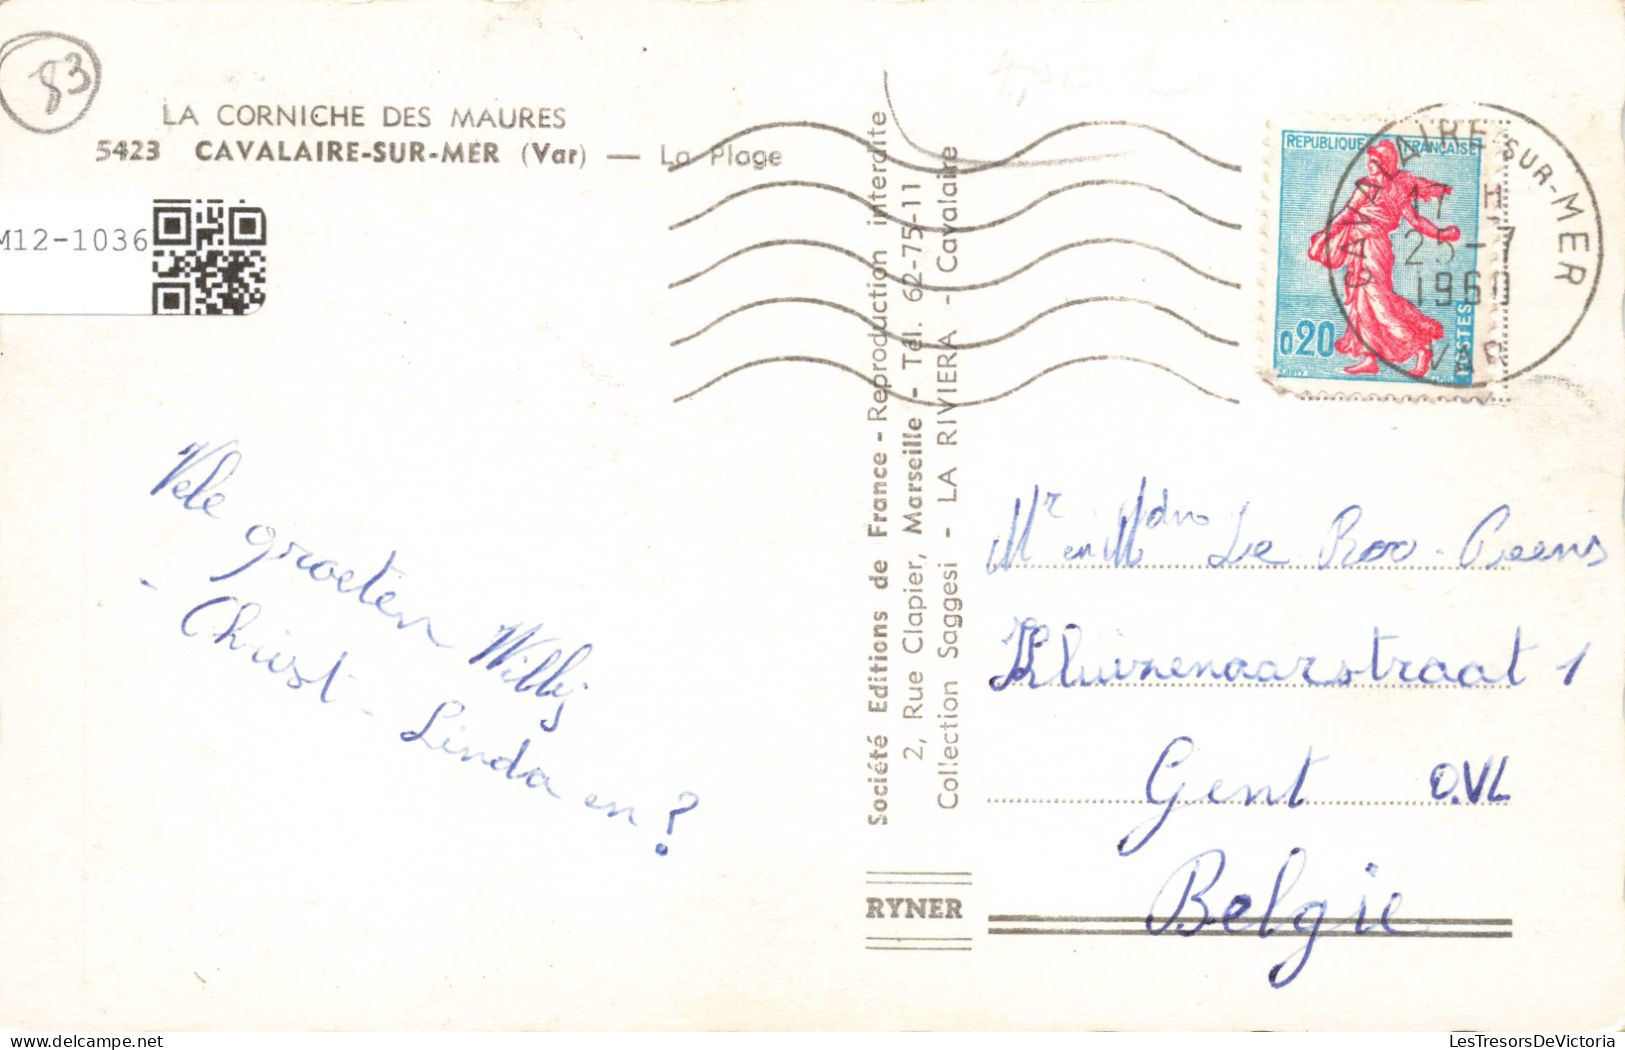 83
LA CORNICHE DES MAURES
5423 CAVALAIRE-SUR-MER (Var) — La Plage
M12-1036
Vele groeten Willy
- Christ - Linda en ?
Société Editions de France - Reproduction interdite
2, Rue Clapier, Marseille - Tél. 62-75-11
Collection Saggesi - LA RIVIERA - Cavalaire
RYNER
REPUBLIQUE FRANÇAISE
0,20
POSTES
CAVALAIRE SUR-MER
17 H
25-7
1960
VAR
Mr en Mdm Le Roo - Peens
Kluizenaarstraat 1
Gent O.VL
Belgie
LesTresorsDeVictoria